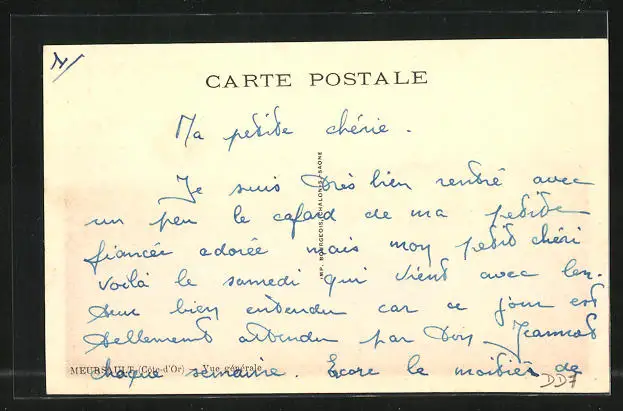 N/
CARTE POSTALE
Ma petite chérie.
Je suis très bien rentré avec
un peu le cafard de ma petite
fiancée adorée mais mon petit chéri
voilà le samedi qui vient avec len-
teur bien entendu car ce jour est
tellement attendu par toi Jeannot
chaque semaine. Ecore la moitié de
IMP. BOURGEOIS, CHALON-S-SAONE
MEURSAULT (Côte-d'Or) - Vue générale
DD7